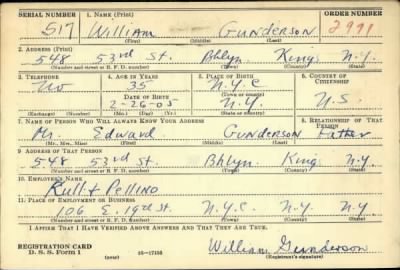 SERIAL NUMBER 1. NAME (Print) ORDER NUMBER
517 William Gunderson 2991
(First) (Middle) (Last)
2. ADDRESS (Print)
548 53rd St. Bklyn Kings N.Y.
(Number and street or R. F. D. number) (Town) (County) (State)
3. TELEPHONE 4. AGE IN YEARS 5. PLACE OF BIRTH 6. COUNTRY OF CITIZENSHIP
No 35 N.Y.C
DATE OF BIRTH (Town or county)
2-26-05 N.Y. U.S.
(Exchange) (Number) (Mo.) (Day) (Yr.) (State or country)
7. NAME OF PERSON WHO WILL ALWAYS KNOW YOUR ADDRESS 8. RELATIONSHIP OF THAT PERSON
Mr. Edward Gunderson Father
(Mr., Mrs., Miss) (First) (Middle) (Last)
9. ADDRESS OF THAT PERSON
548 53rd St. Bklyn Kings N.Y.
(Number and street or R. F. D. number) (Town) (County) (State)
10. EMPLOYER'S NAME
Pellino
11. PLACE OF EMPLOYMENT OR BUSINESS
106 E. 19th St. N.Y.C. N.Y.
(Number and street or R. F. D. number) (Town) (County) (State)
I AFFIRM THAT I HAVE VERIFIED ABOVE ANSWERS AND THAT THEY ARE TRUE.
REGISTRATION CARD
D. S. S. FORM 1 (over) 16—17105 William Gunderson
(Registrant's signature)